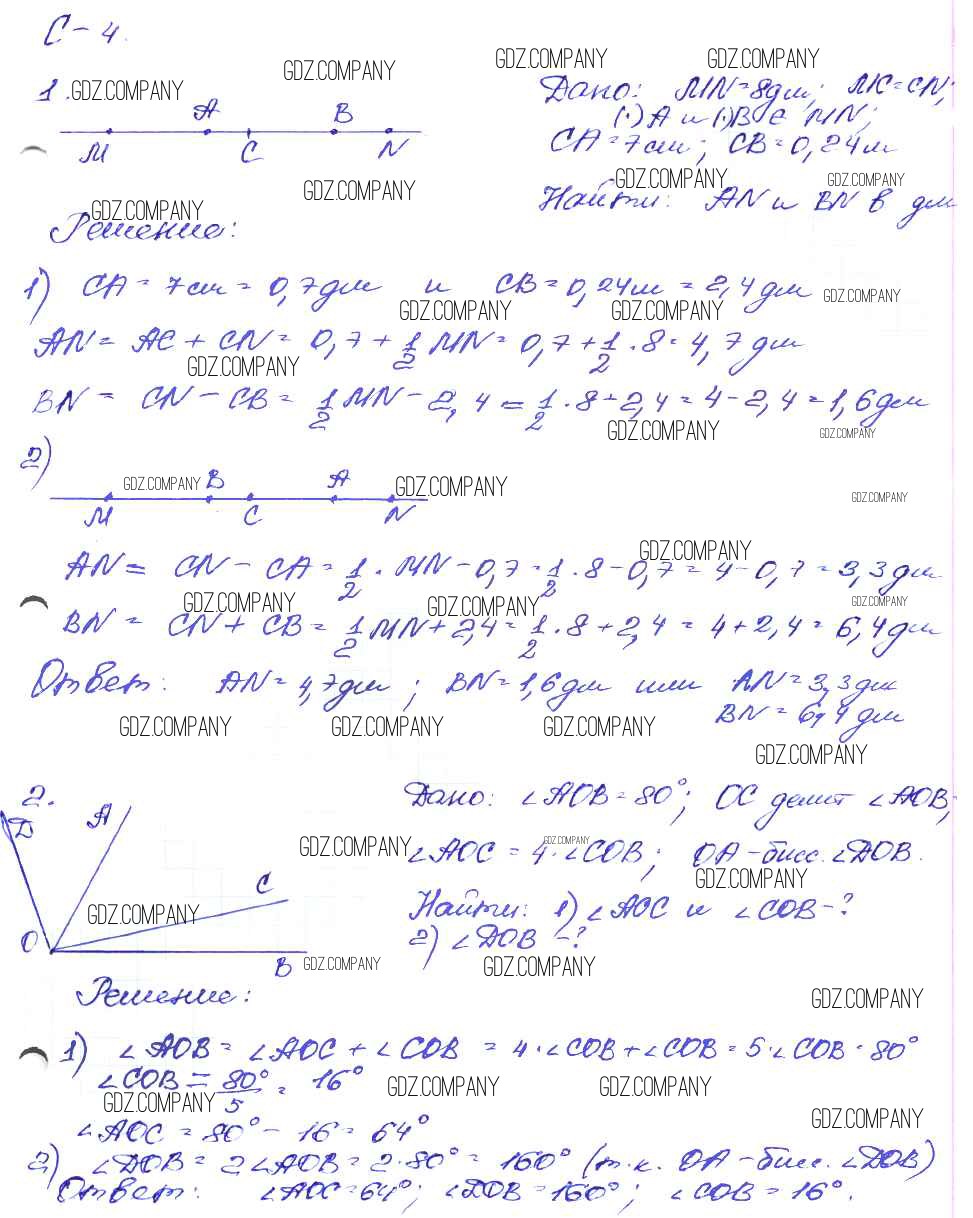 С-4.
GDZ.COMPANY GDZ.COMPANY GDZ.COMPANY
1. GDZ.COMPANY Дано: MN=8дм; MC=CN;
A B (·)A и (·)B ∈ MN;
M C N CA=7см; CB=0,24м
GDZ.COMPANY GDZ.COMPANY GDZ.COMPANY
GDZ.COMPANY Найти: AN и BN в дм
Решение:
1) CA=7см=0,7дм и CB=0,24м=2,4дм GDZ.COMPANY
GDZ.COMPANY GDZ.COMPANY
AN=AC+CN=0,7+1/2MN=0,7+1/2·8=4,7дм
GDZ.COMPANY
BN=CN-CB=1/2MN-2,4=1/2·8+2,4=4-2,4=1,6дм
GDZ.COMPANY GDZ.COMPANY
2) GDZ.COMPANY B A GDZ.COMPANY GDZ.COMPANY
M C N
GDZ.COMPANY
AN=CN-CA=1/2·MN-0,7=1/2·8-0,7=4-0,7=3,3дм
GDZ.COMPANY GDZ.COMPANY GDZ.COMPANY
BN=CN+CB=1/2MN+2,4=1/2·8+2,4=4+2,4=6,4дм
Ответ: AN=4,7дм; BN=1,6дм или AN=3,3дм
BN=6,4дм
GDZ.COMPANY GDZ.COMPANY GDZ.COMPANY
GDZ.COMPANY
2. Дано: ∠AOB=80°; OC делит ∠AOB;
D A
GDZ.COMPANY GDZ.COMPANY
∠AOC=4·∠COB; OA-бисс.∠DOB.
C GDZ.COMPANY
GDZ.COMPANY Найти: 1)∠AOC и ∠COB-?
O 2)∠DOB-?
B GDZ.COMPANY GDZ.COMPANY
Решение: GDZ.COMPANY
1) ∠AOB=∠AOC+∠COB=4·∠COB+∠COB=5·∠COB=80°
∠COB=80°/5=16° GDZ.COMPANY GDZ.COMPANY
GDZ.COMPANY GDZ.COMPANY
∠AOC=80°-16=64°
2) ∠DOB=2∠AOB=2·80°=160° (т.к. OA-бисс.∠DOB)
Ответ: ∠AOC=64°; ∠DOB=160°; ∠COB=16°.